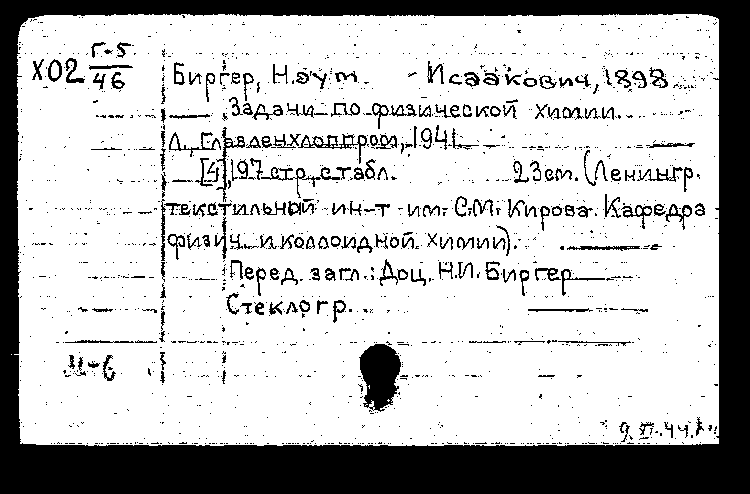 Х02 Г-5/46
Биргер, Наум Исаакович, 1898
Задачи по физической химии.
Л., Главленхлоппром, 1941
[4], 197 стр., с табл. 23 см. (Ленингр.
текстильный ин-т им. С.М. Кирова. Кафедра
физич. и коллоидной химии).
Перед. загл.: Доц. Н.И. Биргер
Стеклогр.